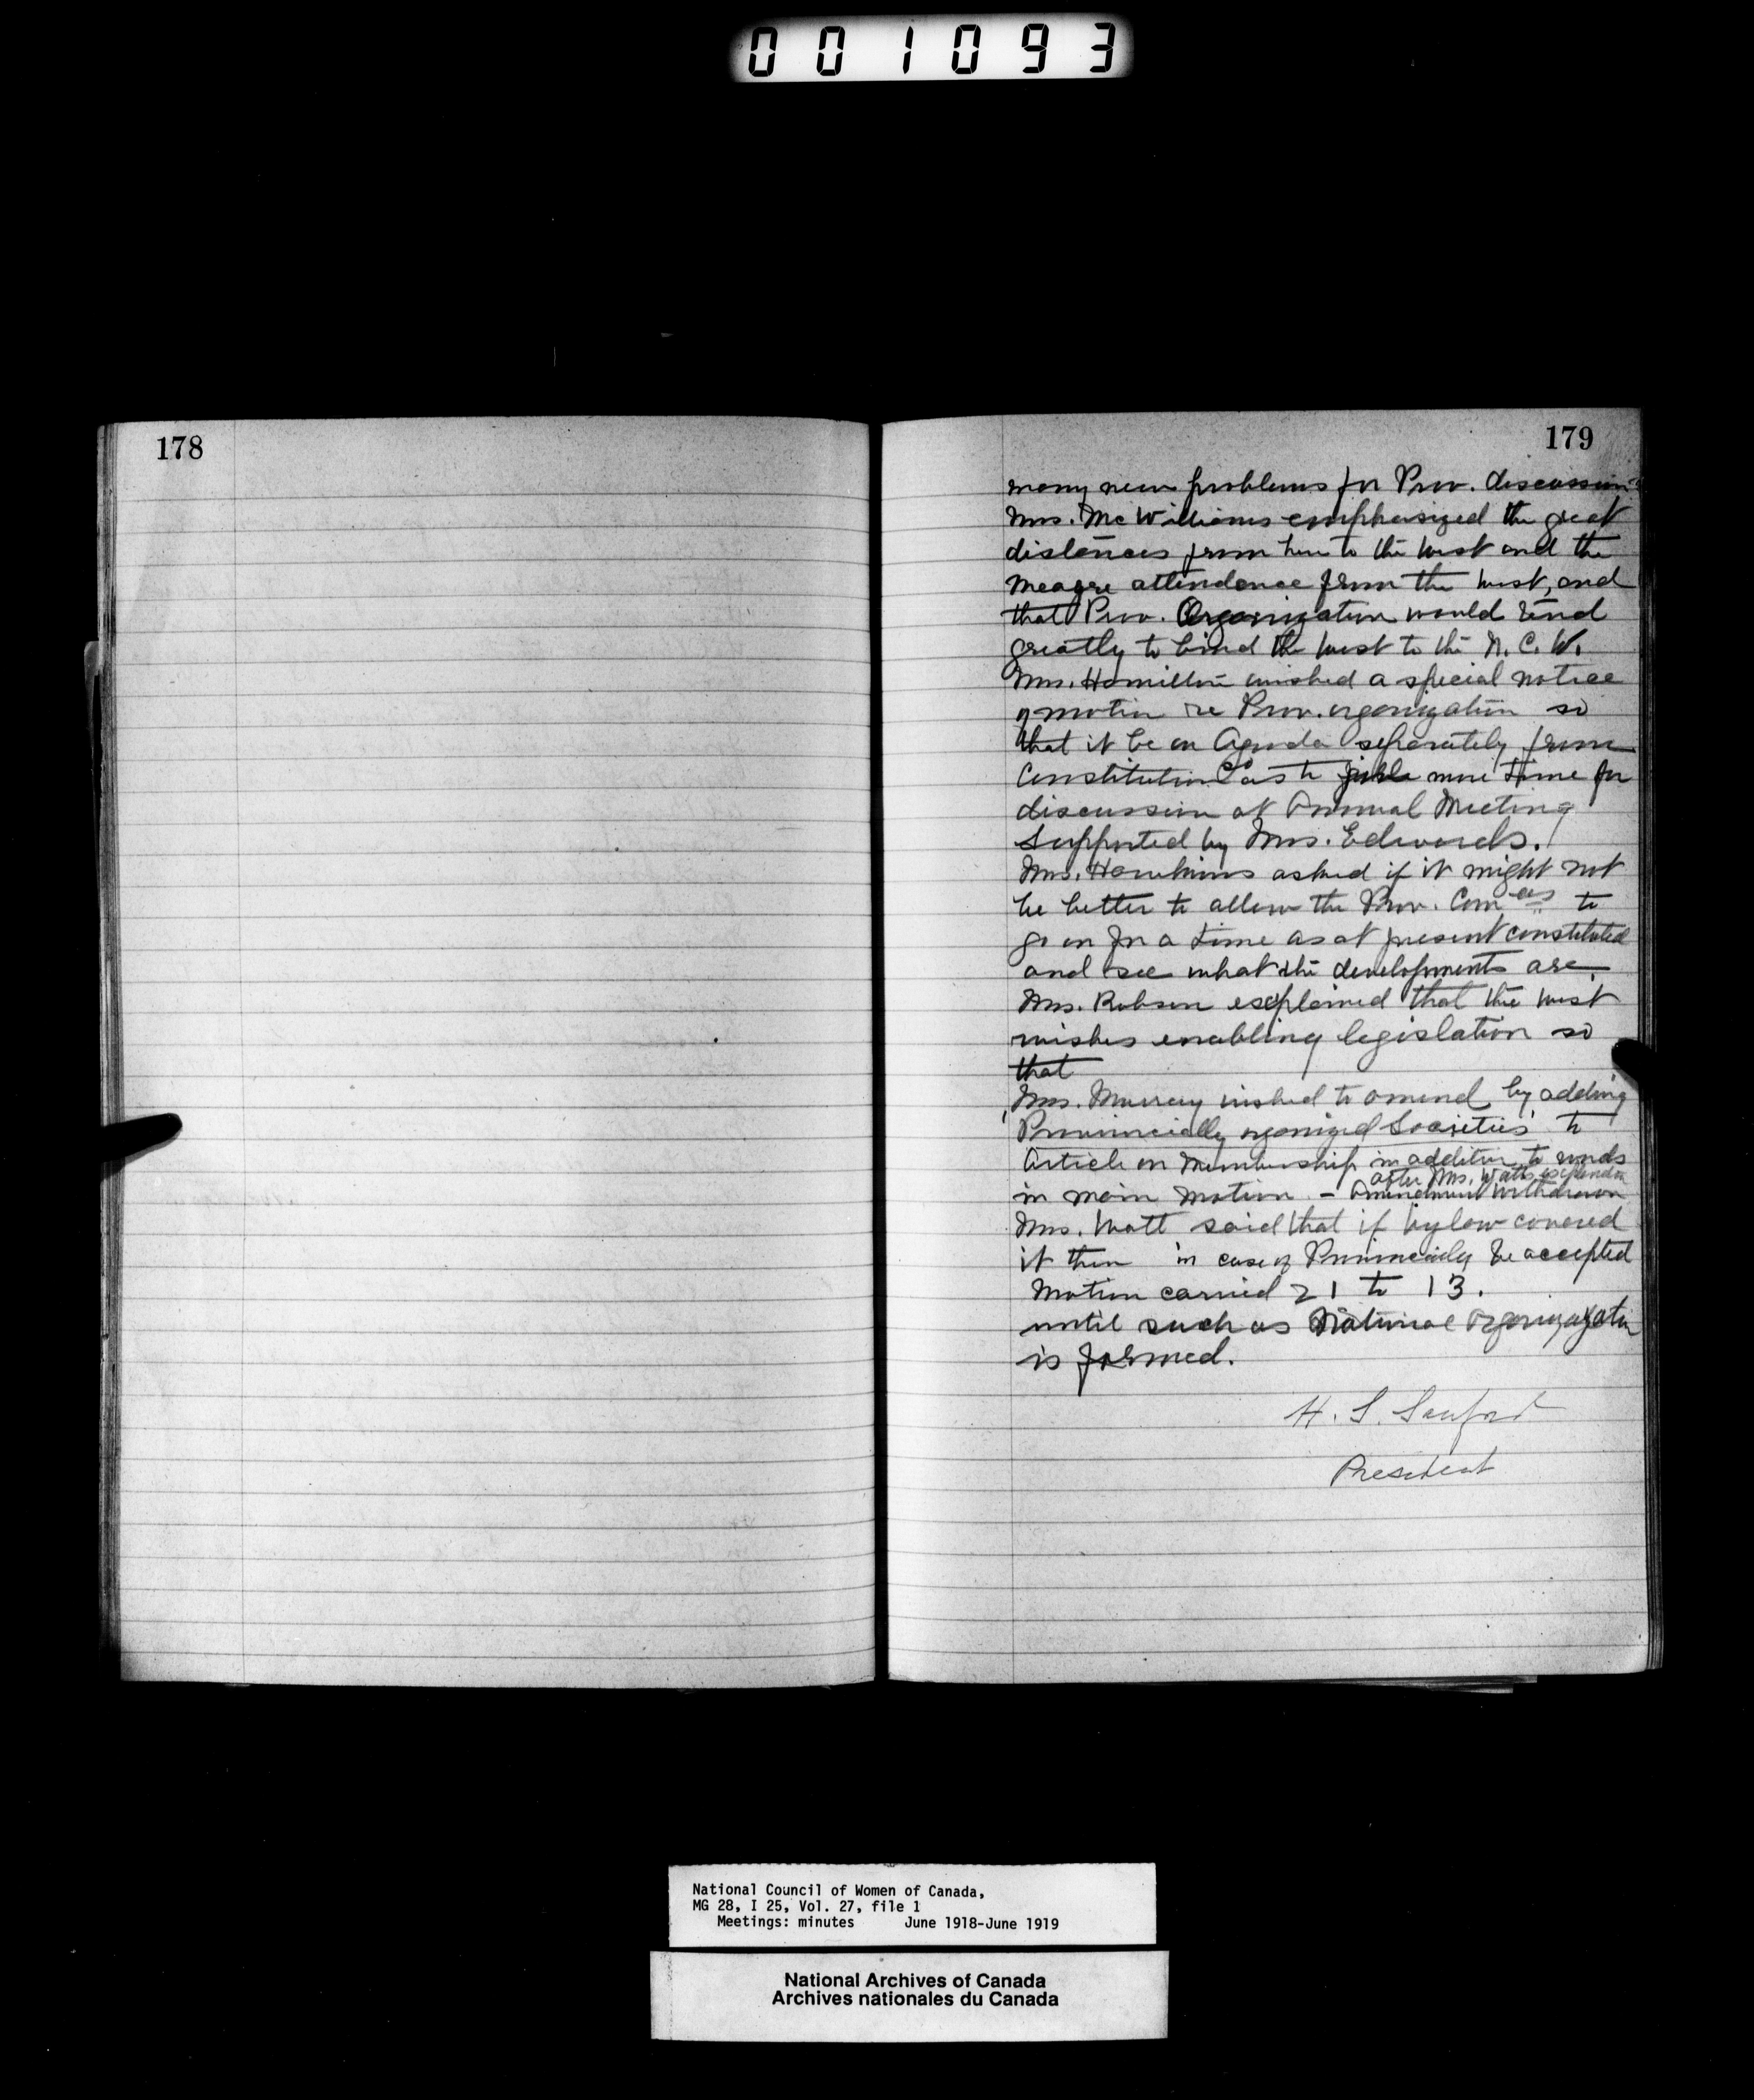 001093
178
179
many new problems for Prov. discussion
Mrs. McWilliams emphasized the great
distances from here to the West and the
meagre attendance from the West, and
that Prov. Organization would tend
greatly to bind the West to the N. C. W.
Mrs. Hamilton wished a special notice
of motion re Prov. organization so
that it be on Agenda separately from
Constitution so as to give more time for
discussion at Annual Meeting
Supported by Mrs. Edwards.
Mrs. Hawkins asked if it might not
be better to allow the Prov. Com ees to
go on for a time as at present constituted
and see what the developments are.
Mrs. Robson explained that the West
wishes enabling legislation so
that
Mrs. Murray wished to amend by adding
'Provincially organized Societies' to
Article on Membership in addition to words
after Mrs. Watts explanation
in main motion - Amendment withdrawn
Mrs. Watt said that if bylaw covered
it then in case of Provincially be accepted
Motion carried 21 to 13.
until such as National Organization
is formed.
H. S. Sanford
President
National Council of Women of Canada,
MG 28, I 25, Vol. 27, file 1
Meetings: minutes June 1918-June 1919
National Archives of Canada
Archives nationales du Canada